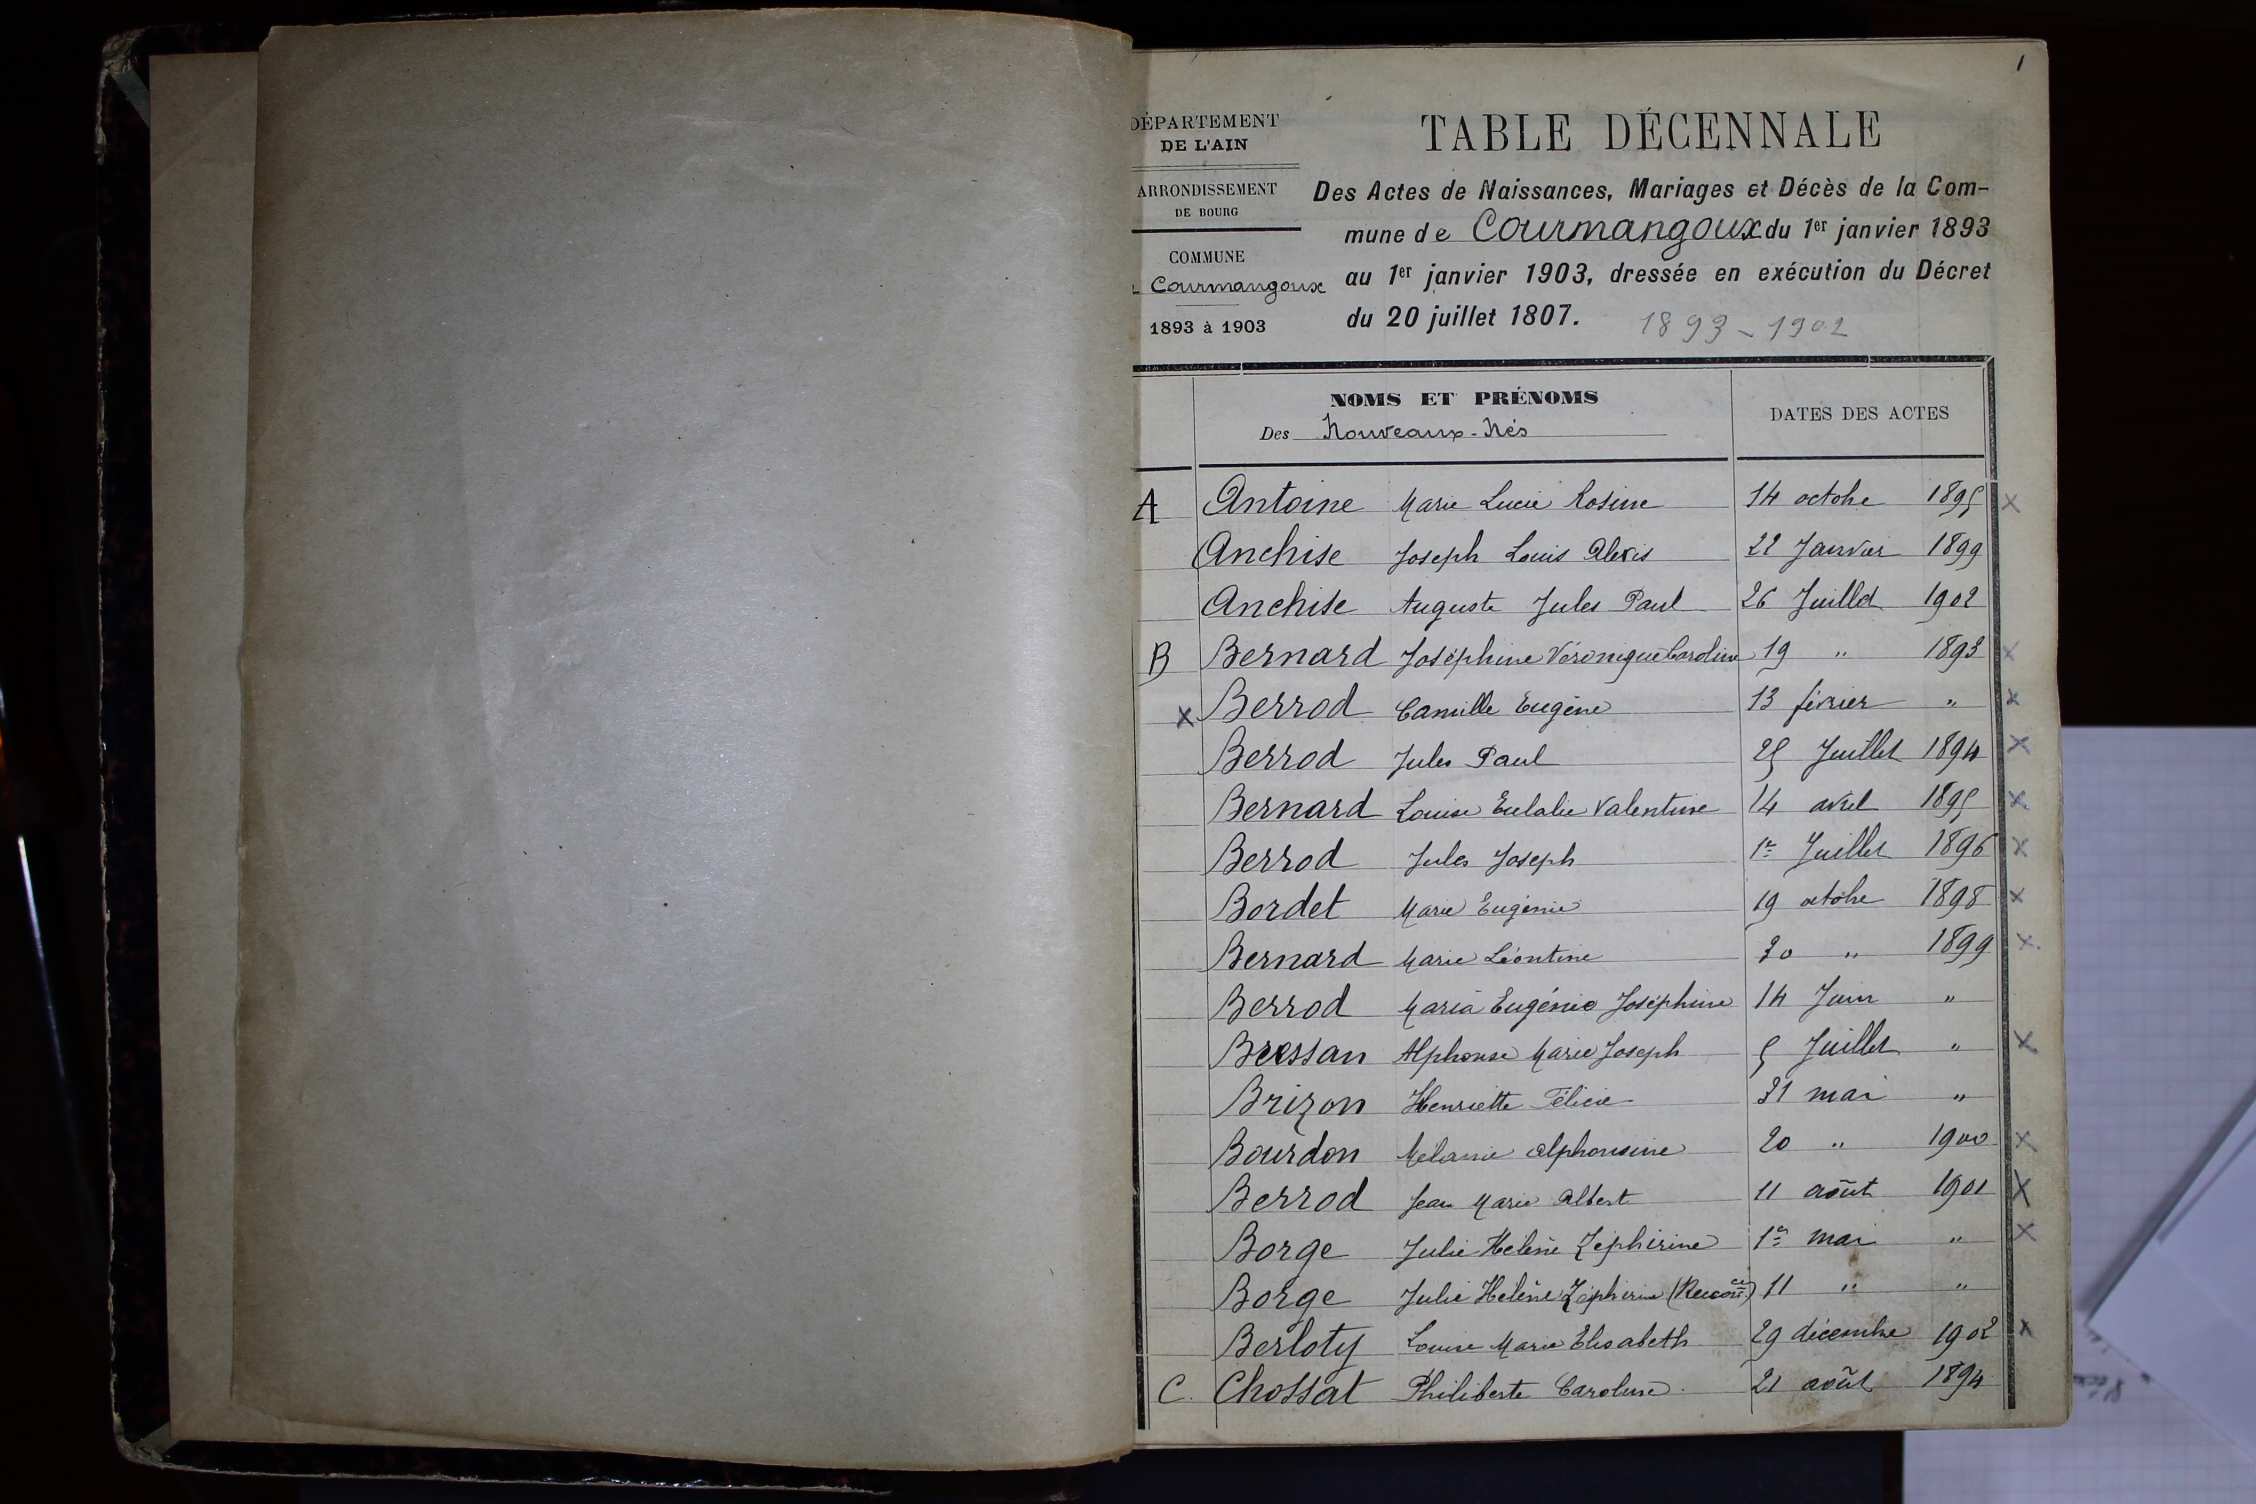 1
DÉPARTEMENT
DE L'AIN
ARRONDISSEMENT
DE BOURG
COMMUNE
Courmangoux
1893 à 1903
TABLE DÉCENNALE
Des Actes de Naissances, Mariages et Décès de la Com-
mune de Courmangoux du 1er janvier 1893
au 1er janvier 1903, dressée en exécution du Décret
du 20 juillet 1807. 1893-1902
NOMS ET PRÉNOMS
Des Nouveaux-Nés
DATES DES ACTES
A Antoine Marie Lucie Rosine 14 octobre 1895 x
Anchise Joseph Louis Alexis 22 Janvier 1899
Anchise Auguste Jules Paul 26 Juillet 1902
B Bernard Joséphine Véronique Caroline 19 " 1893 x
x Berrod Camille Eugène 13 février " x
Berrod Jules Paul 25 Juillet 1894 x
Bernard Louise Eulalie Valentine 14 avril 1895 x
Berrod Jules Joseph 1er Juillet 1896 x
Bordet Marie Eugénie 19 octobre 1898 x
Bernard Marie Léontine 30 " 1899 x
Berrod Maria Eugénie Joséphine 14 Juin "
Bressan Alphonse Marie Joseph 5 Juillet " x
Brizon Henriette Félicie 31 mai "
Bourdon Mélanie Alphonsine 20 " 1900 x
Berrod Jean Marie Albert 11 août 1901 x
Borge Julie Hélène Zéphirine 1er mai " x
Borge Julie Hélène Zéphirine 11 " "
Berloty Louise Marie Elisabeth 29 décembre 1902 x
C. Chossat Philiberte Caroline. 21 août 1894